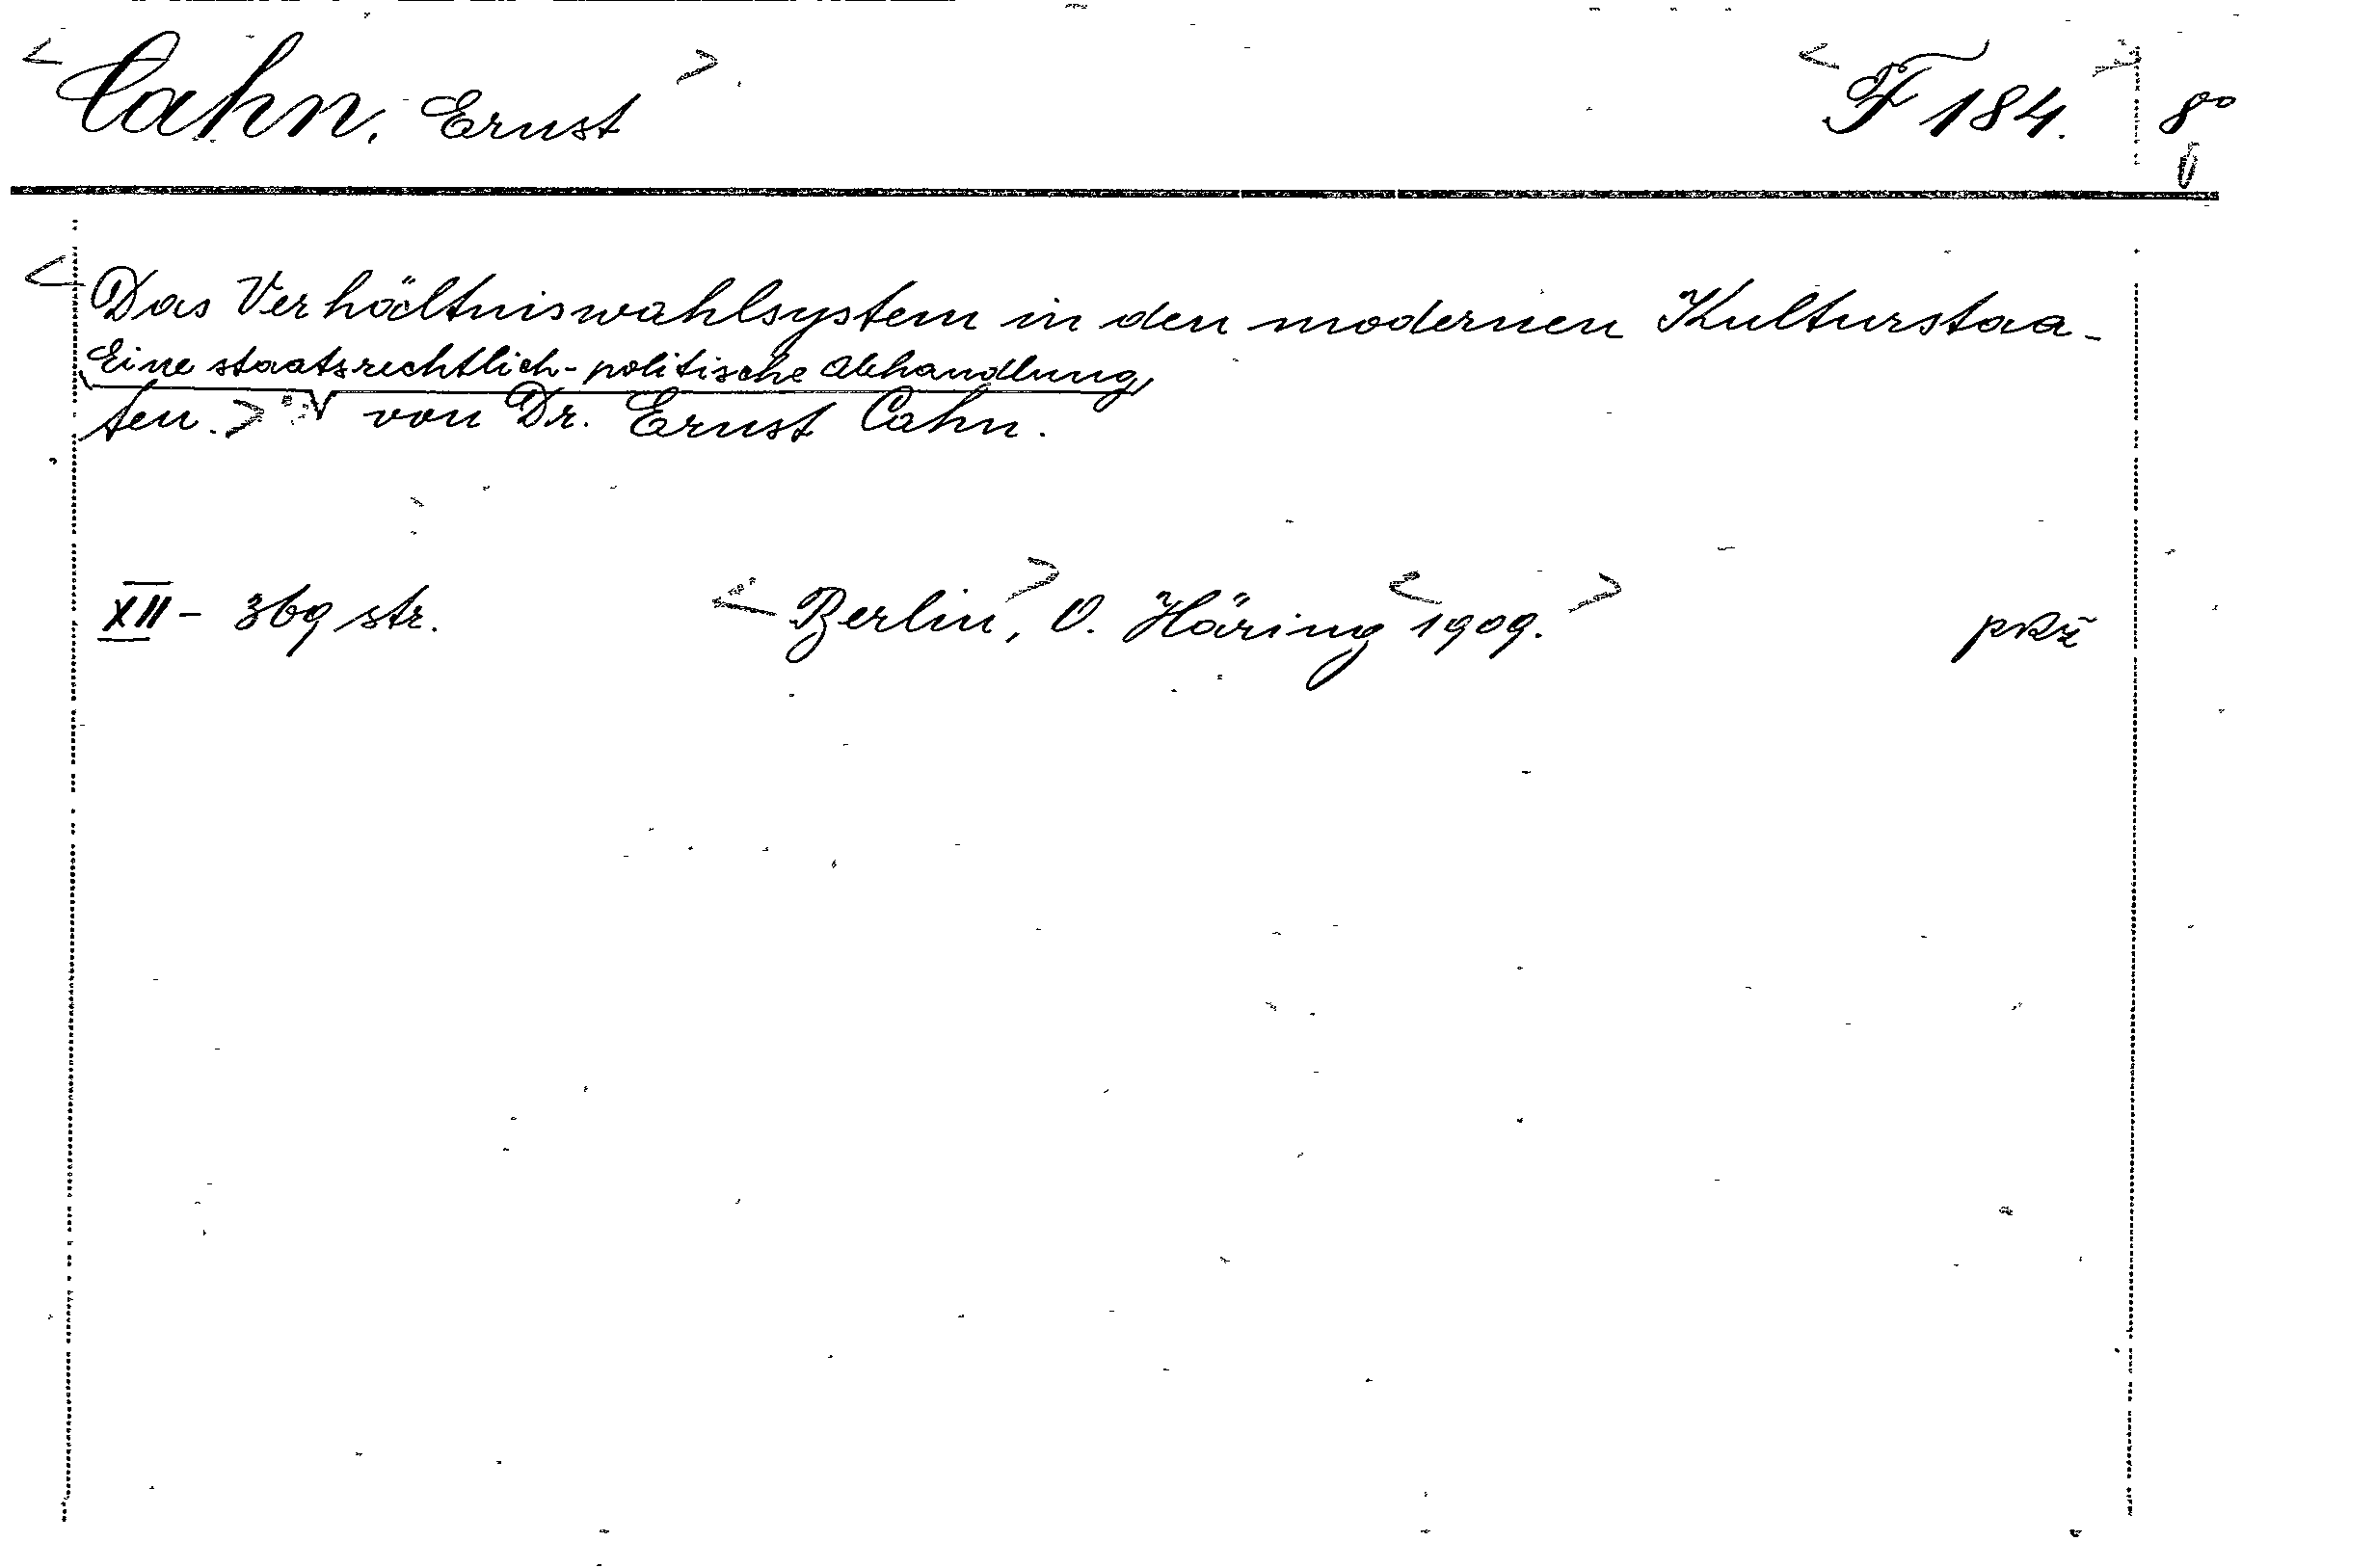 <Cahn, Ernst>
<F 184.> 8°
<Das Verhältniswahlsystem in den modernen Kulturstaa-
Eine staatsrechtlich-politische Abhandlung
ten.> von Dr. Ernst Cahn.
XII - 369 str. <Berlin>, O. Häring <1909.>